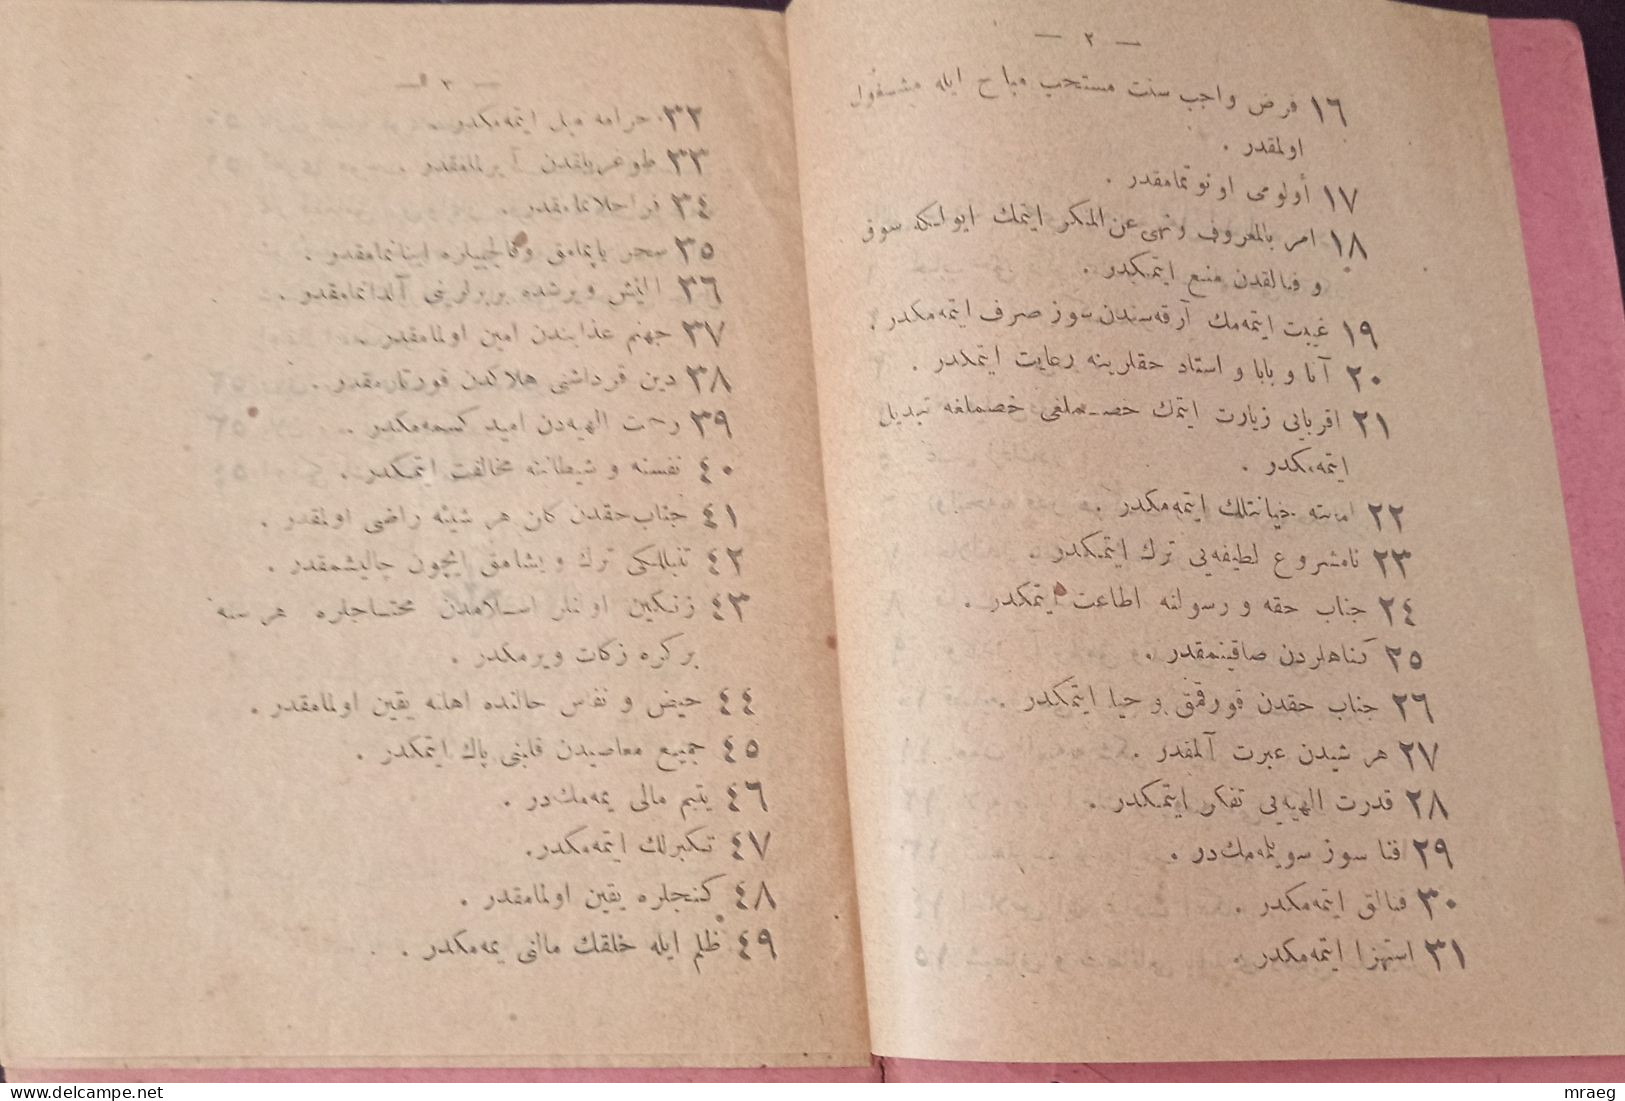 — ٢ —
١٦ فرض واجب سنت مستحب مباح ایله مشغول
اولمقدر .
١٧ أولومی اونوتمامقدر .
١٨ امر بالمعروف ونهی عن المنکر ایتمك ایولکه سوق
و فنالقدن منع ایتمکدر .
١٩ غیبت ایتمه‌مك آرقه‌سندن سوز صرف ایتمه‌مکدر .
٢٠ آنا و بابا و استاد حقلرینه رعایت ایتمکدر .
٢١ اقربایی زیارت ایتمك حصـملغی خصملغه تبدیل
ایتمه‌مکدر .
٢٢ امانته خیانتلك ایتمه‌مکدر .
٢٣ نامشروع لطیفه‌یی ترك ایتمکدر .
٢٤ جناب حقه و رسولنه اطاعت ایتمکدر .
٢٥ کناهلردن صاقینمقدر .
٢٦ جناب حقدن قورقمق و حیا ایتمکدر .
٢٧ هر شیدن عبرت آلمقدر .
٢٨ قدرت الهیه‌یی تفکر ایتمکدر .
٢٩ فنا سوز سویلمه‌مك‌در .
٣٠ فنالق ایتمه‌مکدر .
٣١ استهزا ایتمه‌مکدر .
— ٣ —
٣٢ حرامه میل ایتمه‌مکدر .
٣٣ طوغریلقدن آیرلمامقدر .
٣٤ فراحلانمامقدر .
٣٥ سحر یاپمامق وفالجیلره اینانمامقدر .
٣٦ الیش ویرشده بربرلرینی آلداتمامقدر .
٣٧ جهنم عذابندن امین اولمامقدر
٣٨ دین قرداشنی هلاکدن قورتارمقدر .
٣٩ رحمت الهیه‌دن امید کسمه‌مکدر .
٤٠ نفسنه و شیطاننه مخالفت ایتمکدر .
٤١ جناب حقدن کلن هر شیئه راضی اولمقدر .
٤٢ تنبللکی ترك و یشامق ایچون چالیشمقدر .
٤٣ زنکین اولنلر اسـلامدن محتـاجلره هر سنه
بر کره زکات ویرمکدر .
٤٤ حیض و نفاس حالنده اهلنه یقین اولمامقدر .
٤٥ جمیع معاصیدن قلبنی پاك ایتمکدر .
٤٦ یتیم مالی یمه‌مك‌در .
٤٧ تکبرلك ایتمه‌مکدر.
٤٨ کنجلره یقین اولمامقدر .
٤٩ ظلم ایله خلقك مالنی یمه‌مکدر .
mraeg